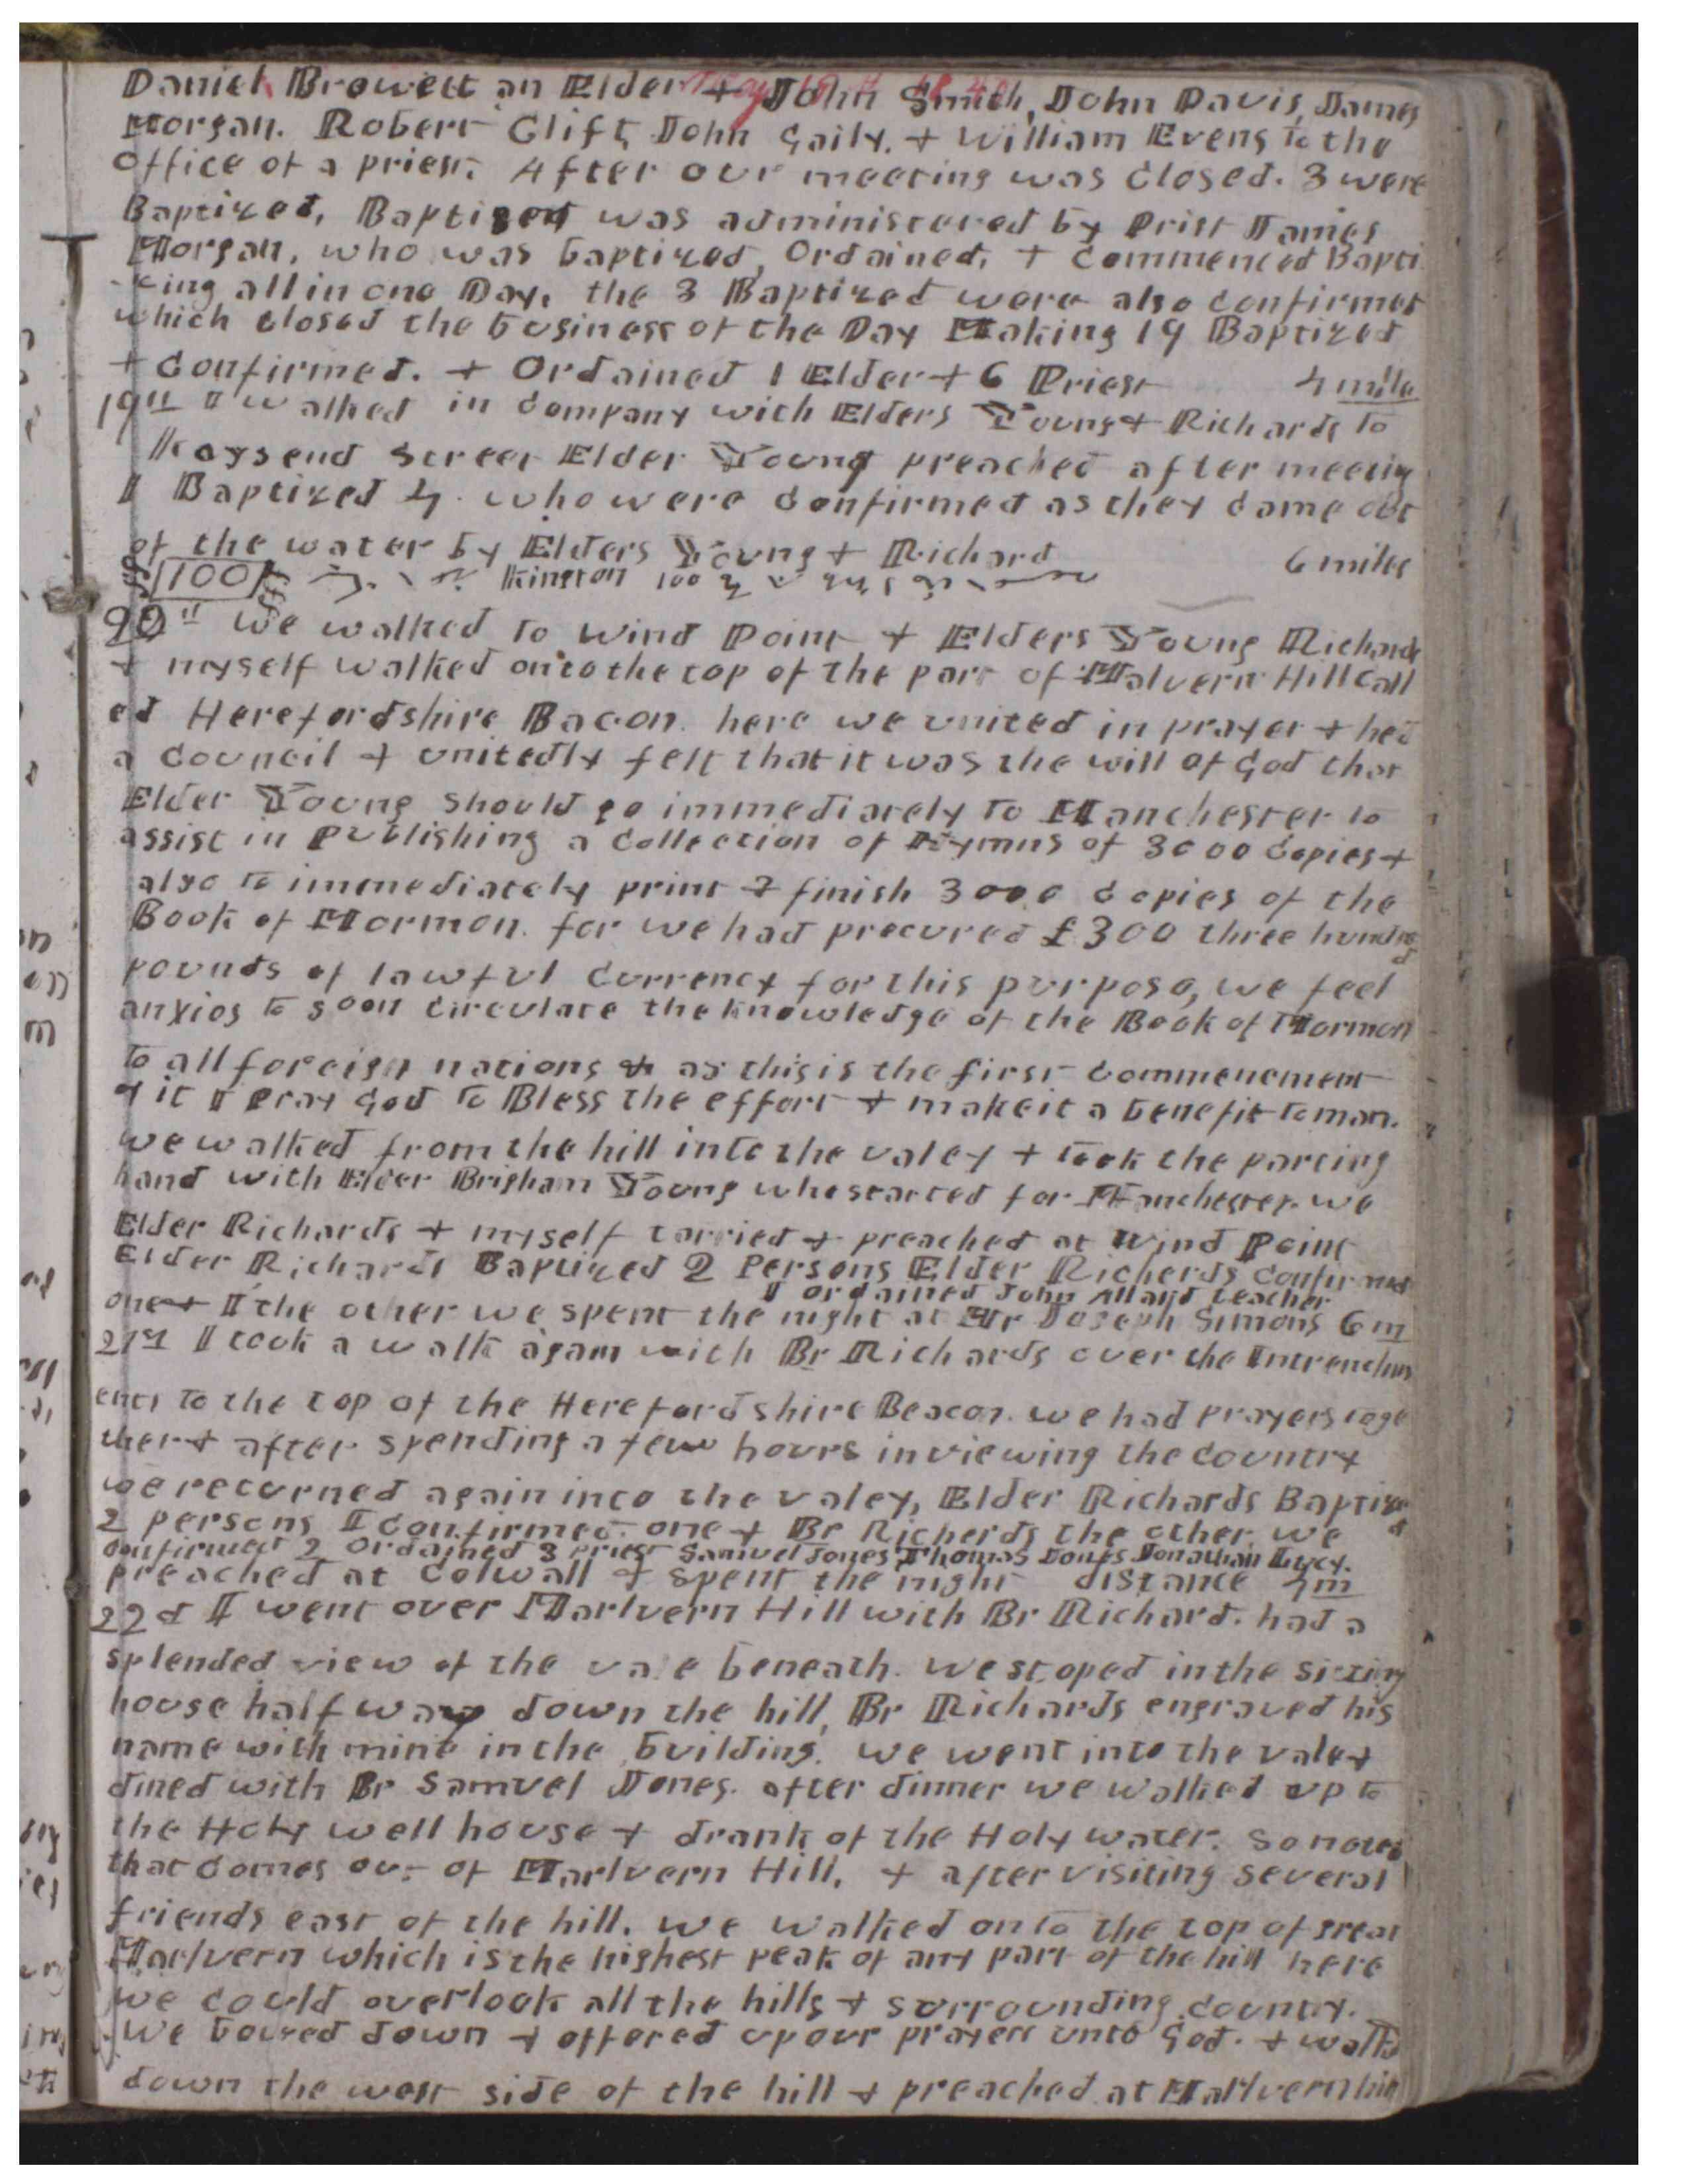 Daniel Browett an Elder + John Smith, John Davis, James
Morgan. Robert Clift, John Gaily. + William Evens to the
Office of a priest. After our meeting was closed. 3 were
Baptized, Baptism was administered by Prist James
Morgan, who was baptized, Ordained, + Commenced Bapti
-zing all in one Day, the 3 Baptized were also confirmed
which closed the business of the Day Making 19 Baptized
+ Confirmed. + Ordained 1 Elder + 6 Priest 4 mile
19th I walked in company with Elders Young + Richards to
Kaysend Street Elder Young preached after meeting
I Baptized 4. who were confirmed as they came out
of the water by Elders Young + Richard 6 miles
100 Kington 100
20th We walked to Wind Point + Elders Young Richards
+ myself walked onto the top of the part of Malvern Hill call
ed Herefordshire Bacon. here we united in prayer + held
a council + unitedly felt that it was the will of God that
Elder Young should go immediately to Manchester to
assist in Publishing a Collection of Hymns of 3000 copies +
also to immediately print & finish 3000 copies of the
Book of Mormon. for we had procured £300 three hundred
pounds of lawful currency for this purpose, we feel
anxios to soon circulate the knowledge of the Book of Mormon
to all foreign nations & as this is the first commencment
of it I pray God to Bless the effort + make it a benefit to man.
we walked from the hill into the valey + took the parting
hand with Elder Brigham Young who started for Manchester. we
Elder Richards + myself tarried + preached at Wind Point
Elder Richards Baptized 2 Persons Elder Richerds confirmed
I ordained John Allard teacher
one + I the other we spent the night at Mr Joseph Simons 6 m
21st I took a walk again with Br Richards over the Intrenchm
ents to the top of the Herefordshire Beacon. we had prayers toge
ther + after spending a few hours in viewing the country
we returned again into the valey, Elder Richards Baptized
2 persons I confirmed one + Br Richerds the other. we
confirmed 2 Ordained 3 priest Samuel Jones Thomas Jones Jonathan Lucy.
preached at Colwall & spent the night distance 4 m
22d I went over Marlvern Hill with Br Richard. had a
splended view of the vale beneath. we stoped in the sitting
house half way down the hill, Br Richards engraved his
name with mine in the building. we went into the valey
dined with Br Samuel Jones. after dinner we walked up to
the Holy well house + drank of the Holy water. so noted
that comes out of Marlvern Hill. + after visiting several
friends east of the hill. we walked onto the top of great
Marlvern which is the highest peak of any part of the hill here
we could overlook all the hills + surrounding country.
We bowed down + offered up our prayers unto God. + walked
down the west side of the hill + preached at Marlvern hill